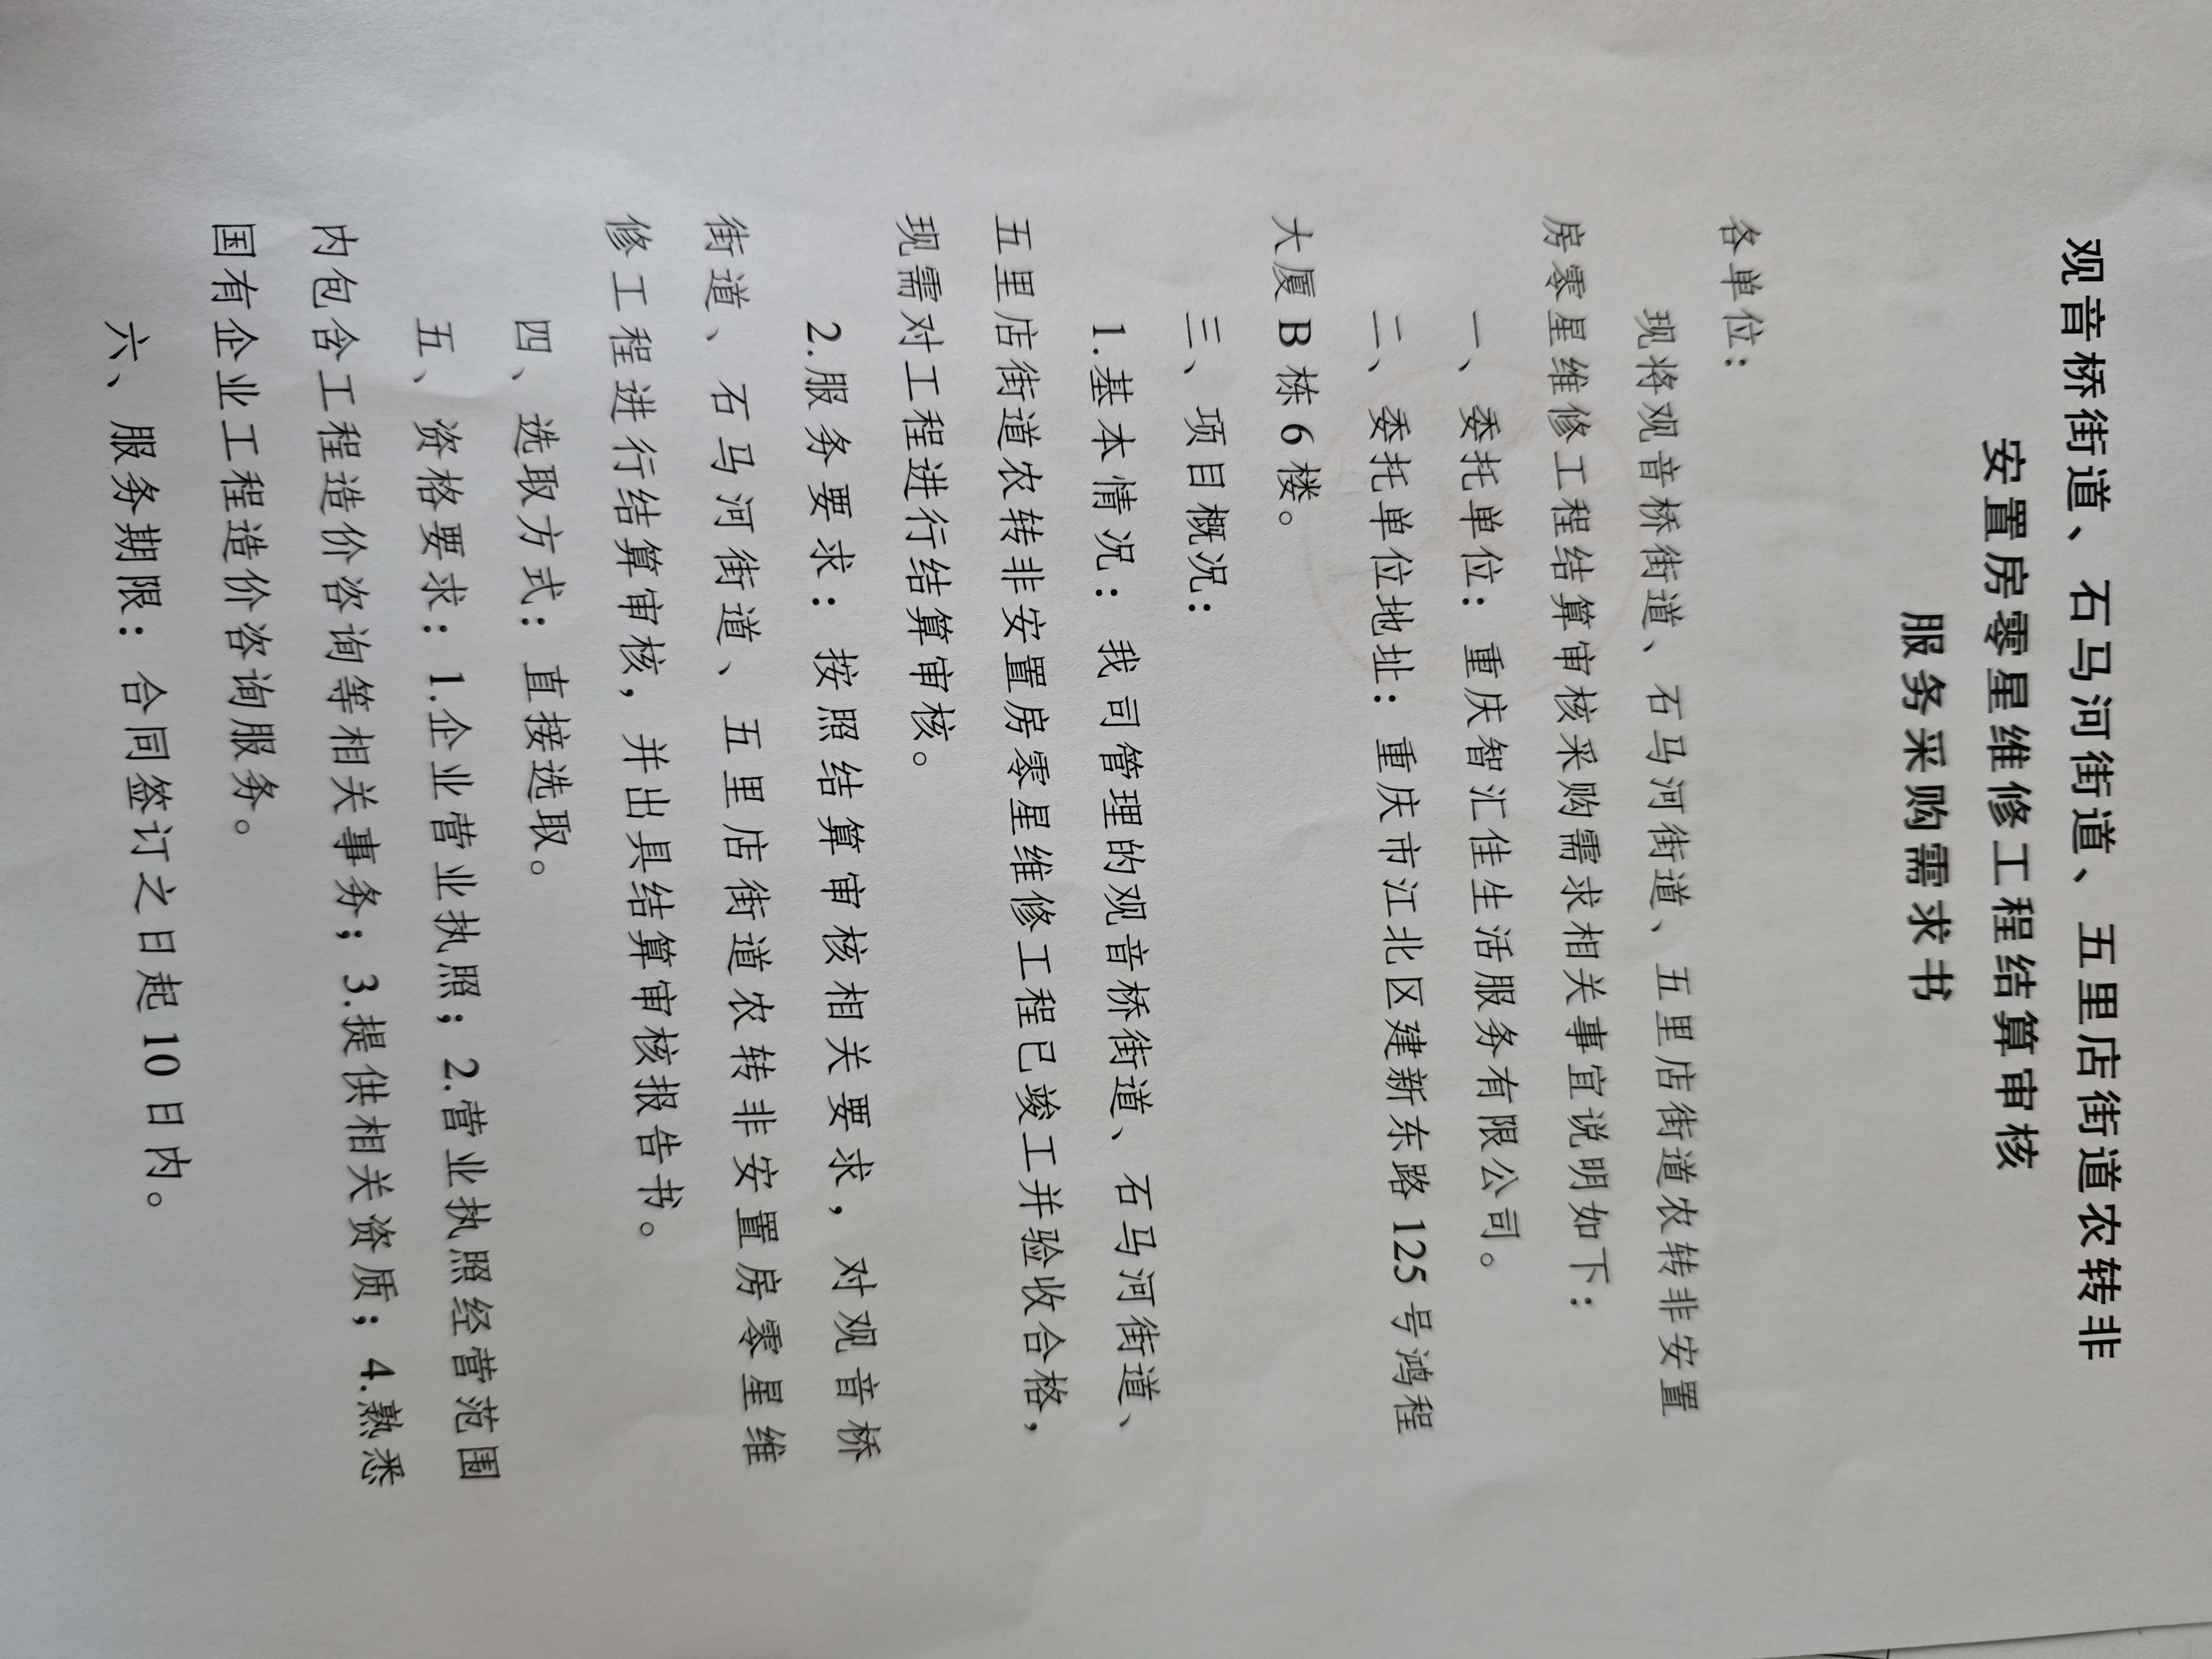 观音桥街道、石马河街道、五里店街道农转非
安置房零星维修工程结算审核
服务采购需求书
各单位：
现将观音桥街道、石马河街道、五里店街道农转非安置
房零星维修工程结算审核采购需求相关事宜说明如下：
一、委托单位：重庆智汇佳生活服务有限公司。
二、委托单位地址：重庆市江北区建新东路 125 号鸿程
大厦 B 栋 6 楼。
三、项目概况：
1.基本情况：我司管理的观音桥街道、石马河街道、
五里店街道农转非安置房零星维修工程已竣工并验收合格，
现需对工程进行结算审核。
2.服务要求：按照结算审核相关要求，对观音桥
街道、石马河街道、五里店街道农转非安置房零星维
修工程进行结算审核，并出具结算审核报告书。
四、选取方式：直接选取。
五、资格要求：1.企业营业执照；2.营业执照经营范围
内包含工程造价咨询等相关事务；3.提供相关资质；4.熟悉
国有企业工程造价咨询服务。
六、服务期限：合同签订之日起 10 日内。